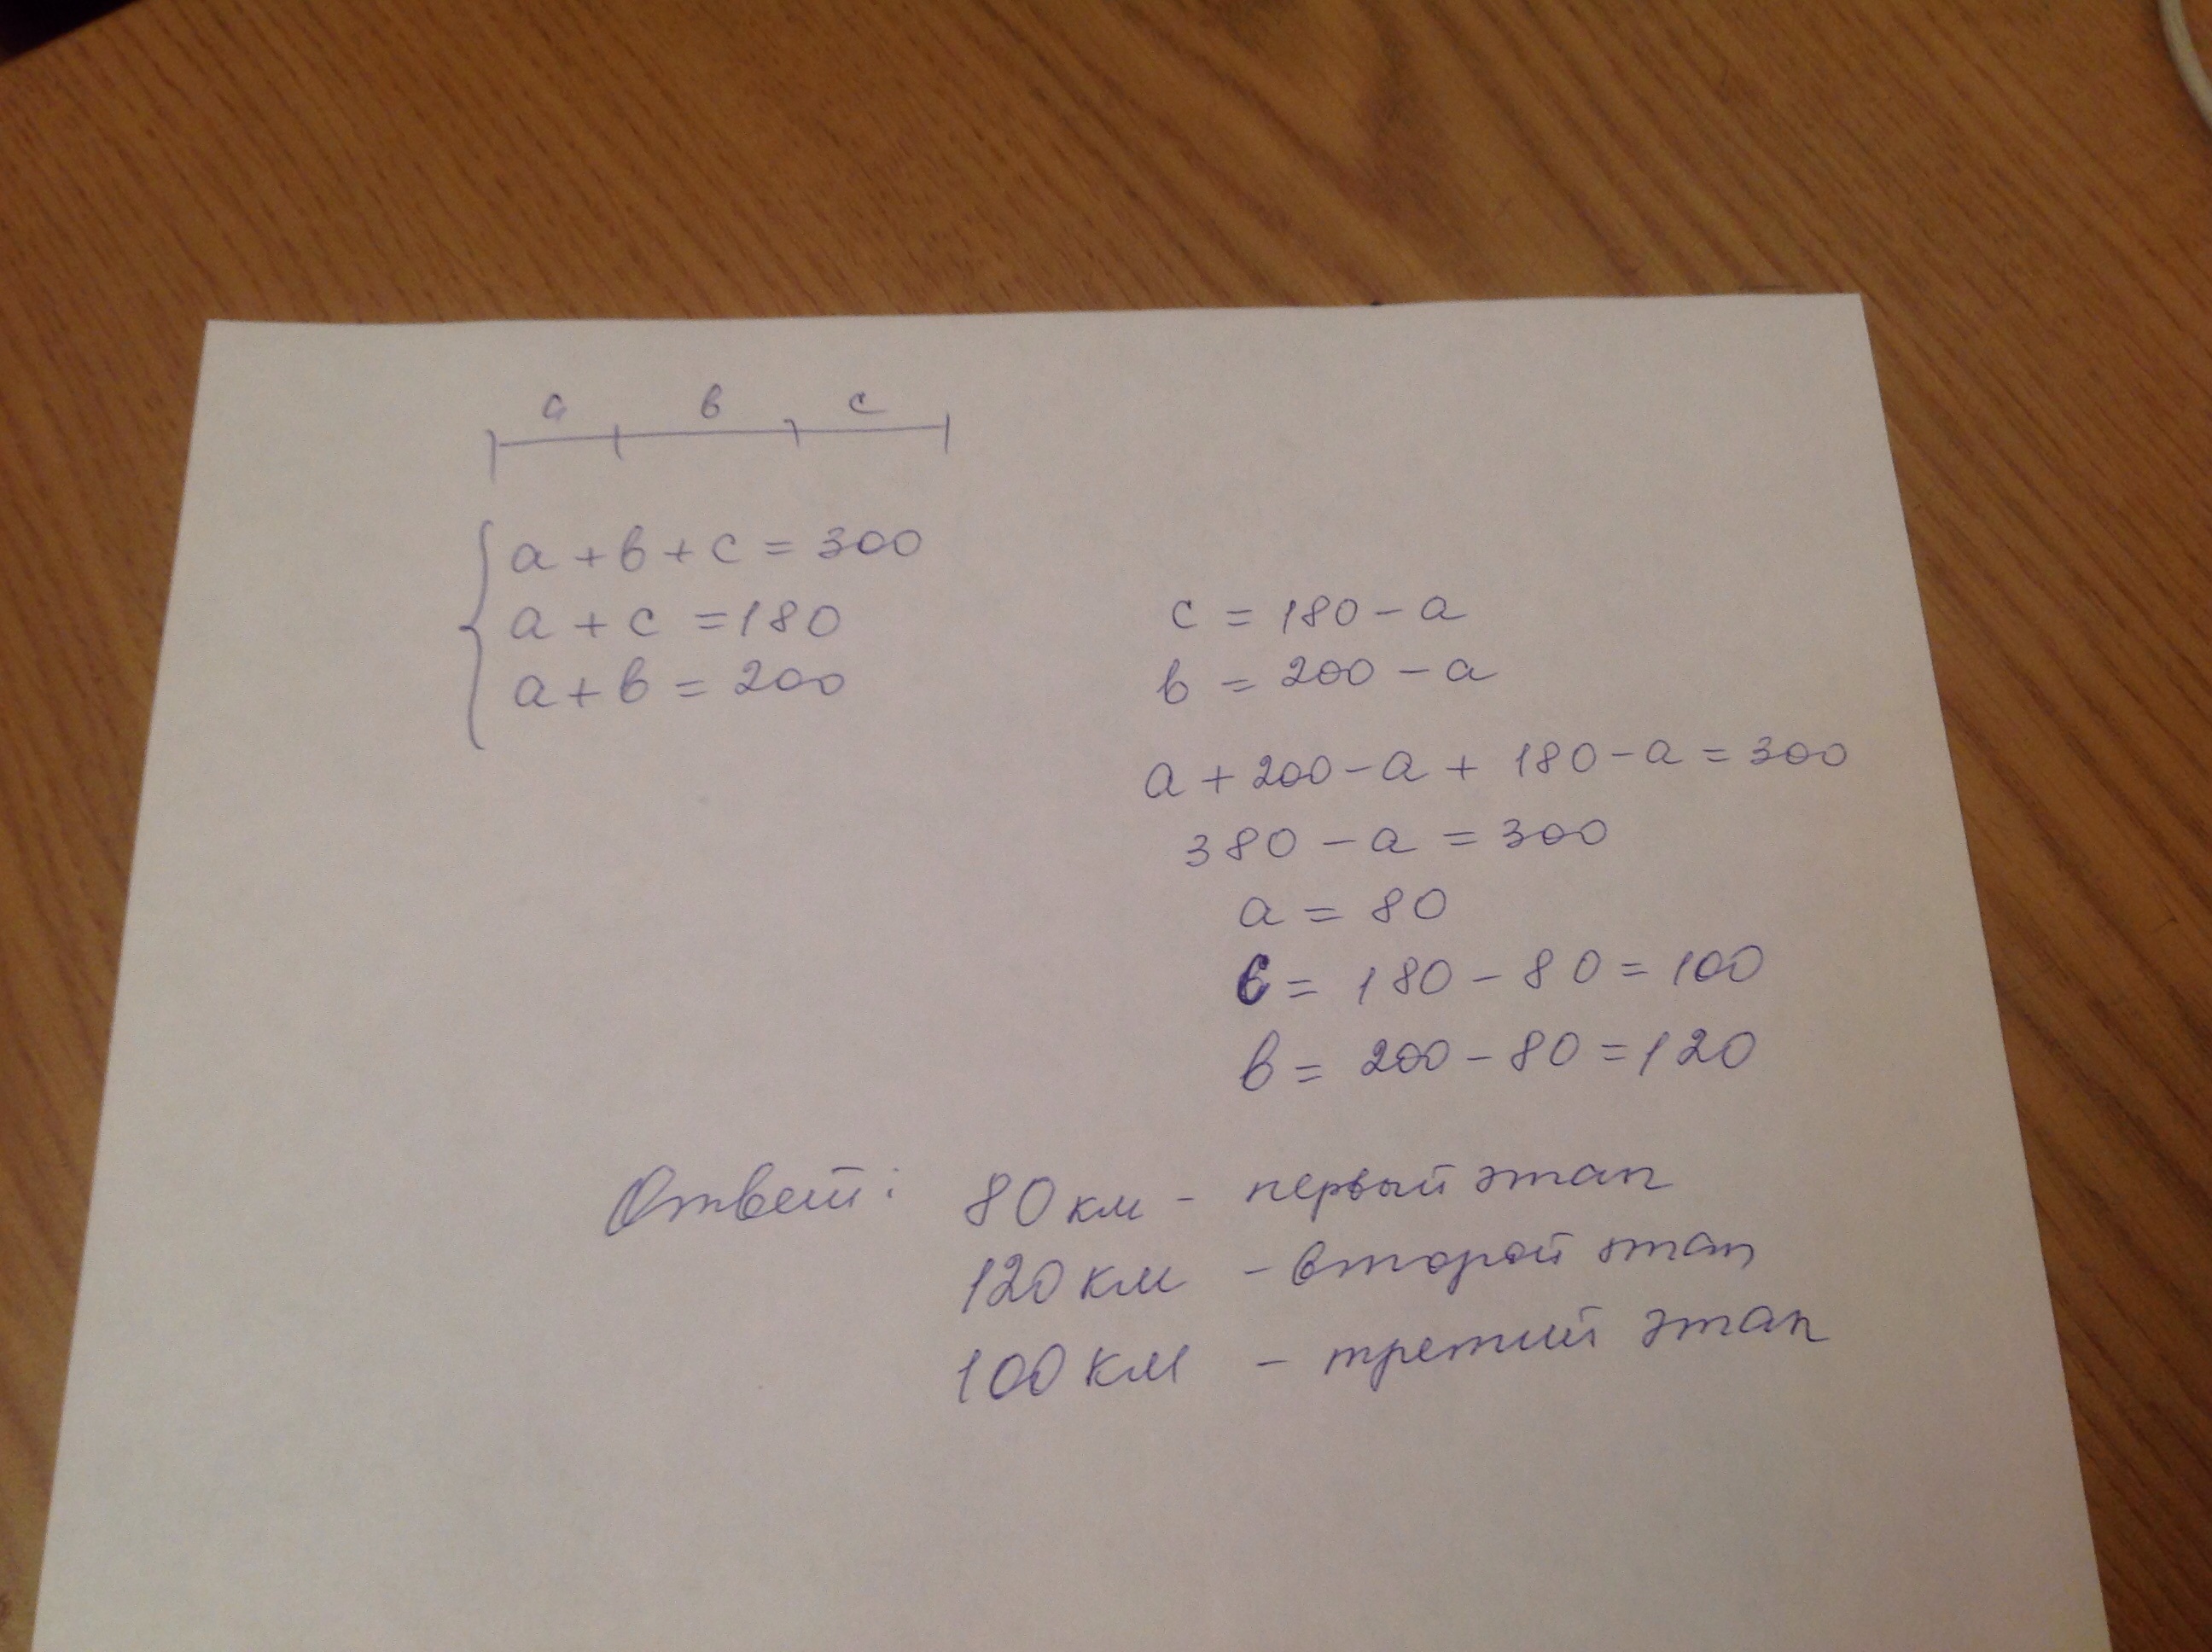 a в c
a + в + c = 300
a + c = 180
a + в = 200
c = 180 - a
в = 200 - a
a + 200 - a + 180 - a = 300
380 - a = 300
a = 80
c = 180 - 80 = 100
в = 200 - 80 = 120
Ответ: 80 км - первый этап
120 км - второй этап
100 км - третий этап